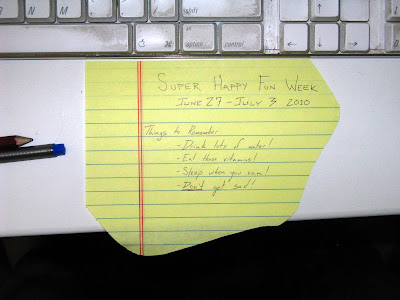 N M
alt
option control
SUPER HAPPY FUN WEEK
JUNE 27 - JULY 3 2010
Things to Remember
- Drink lots of water!
- Eat those vitamins!
- Sleep when you can!
- Don't get sad!